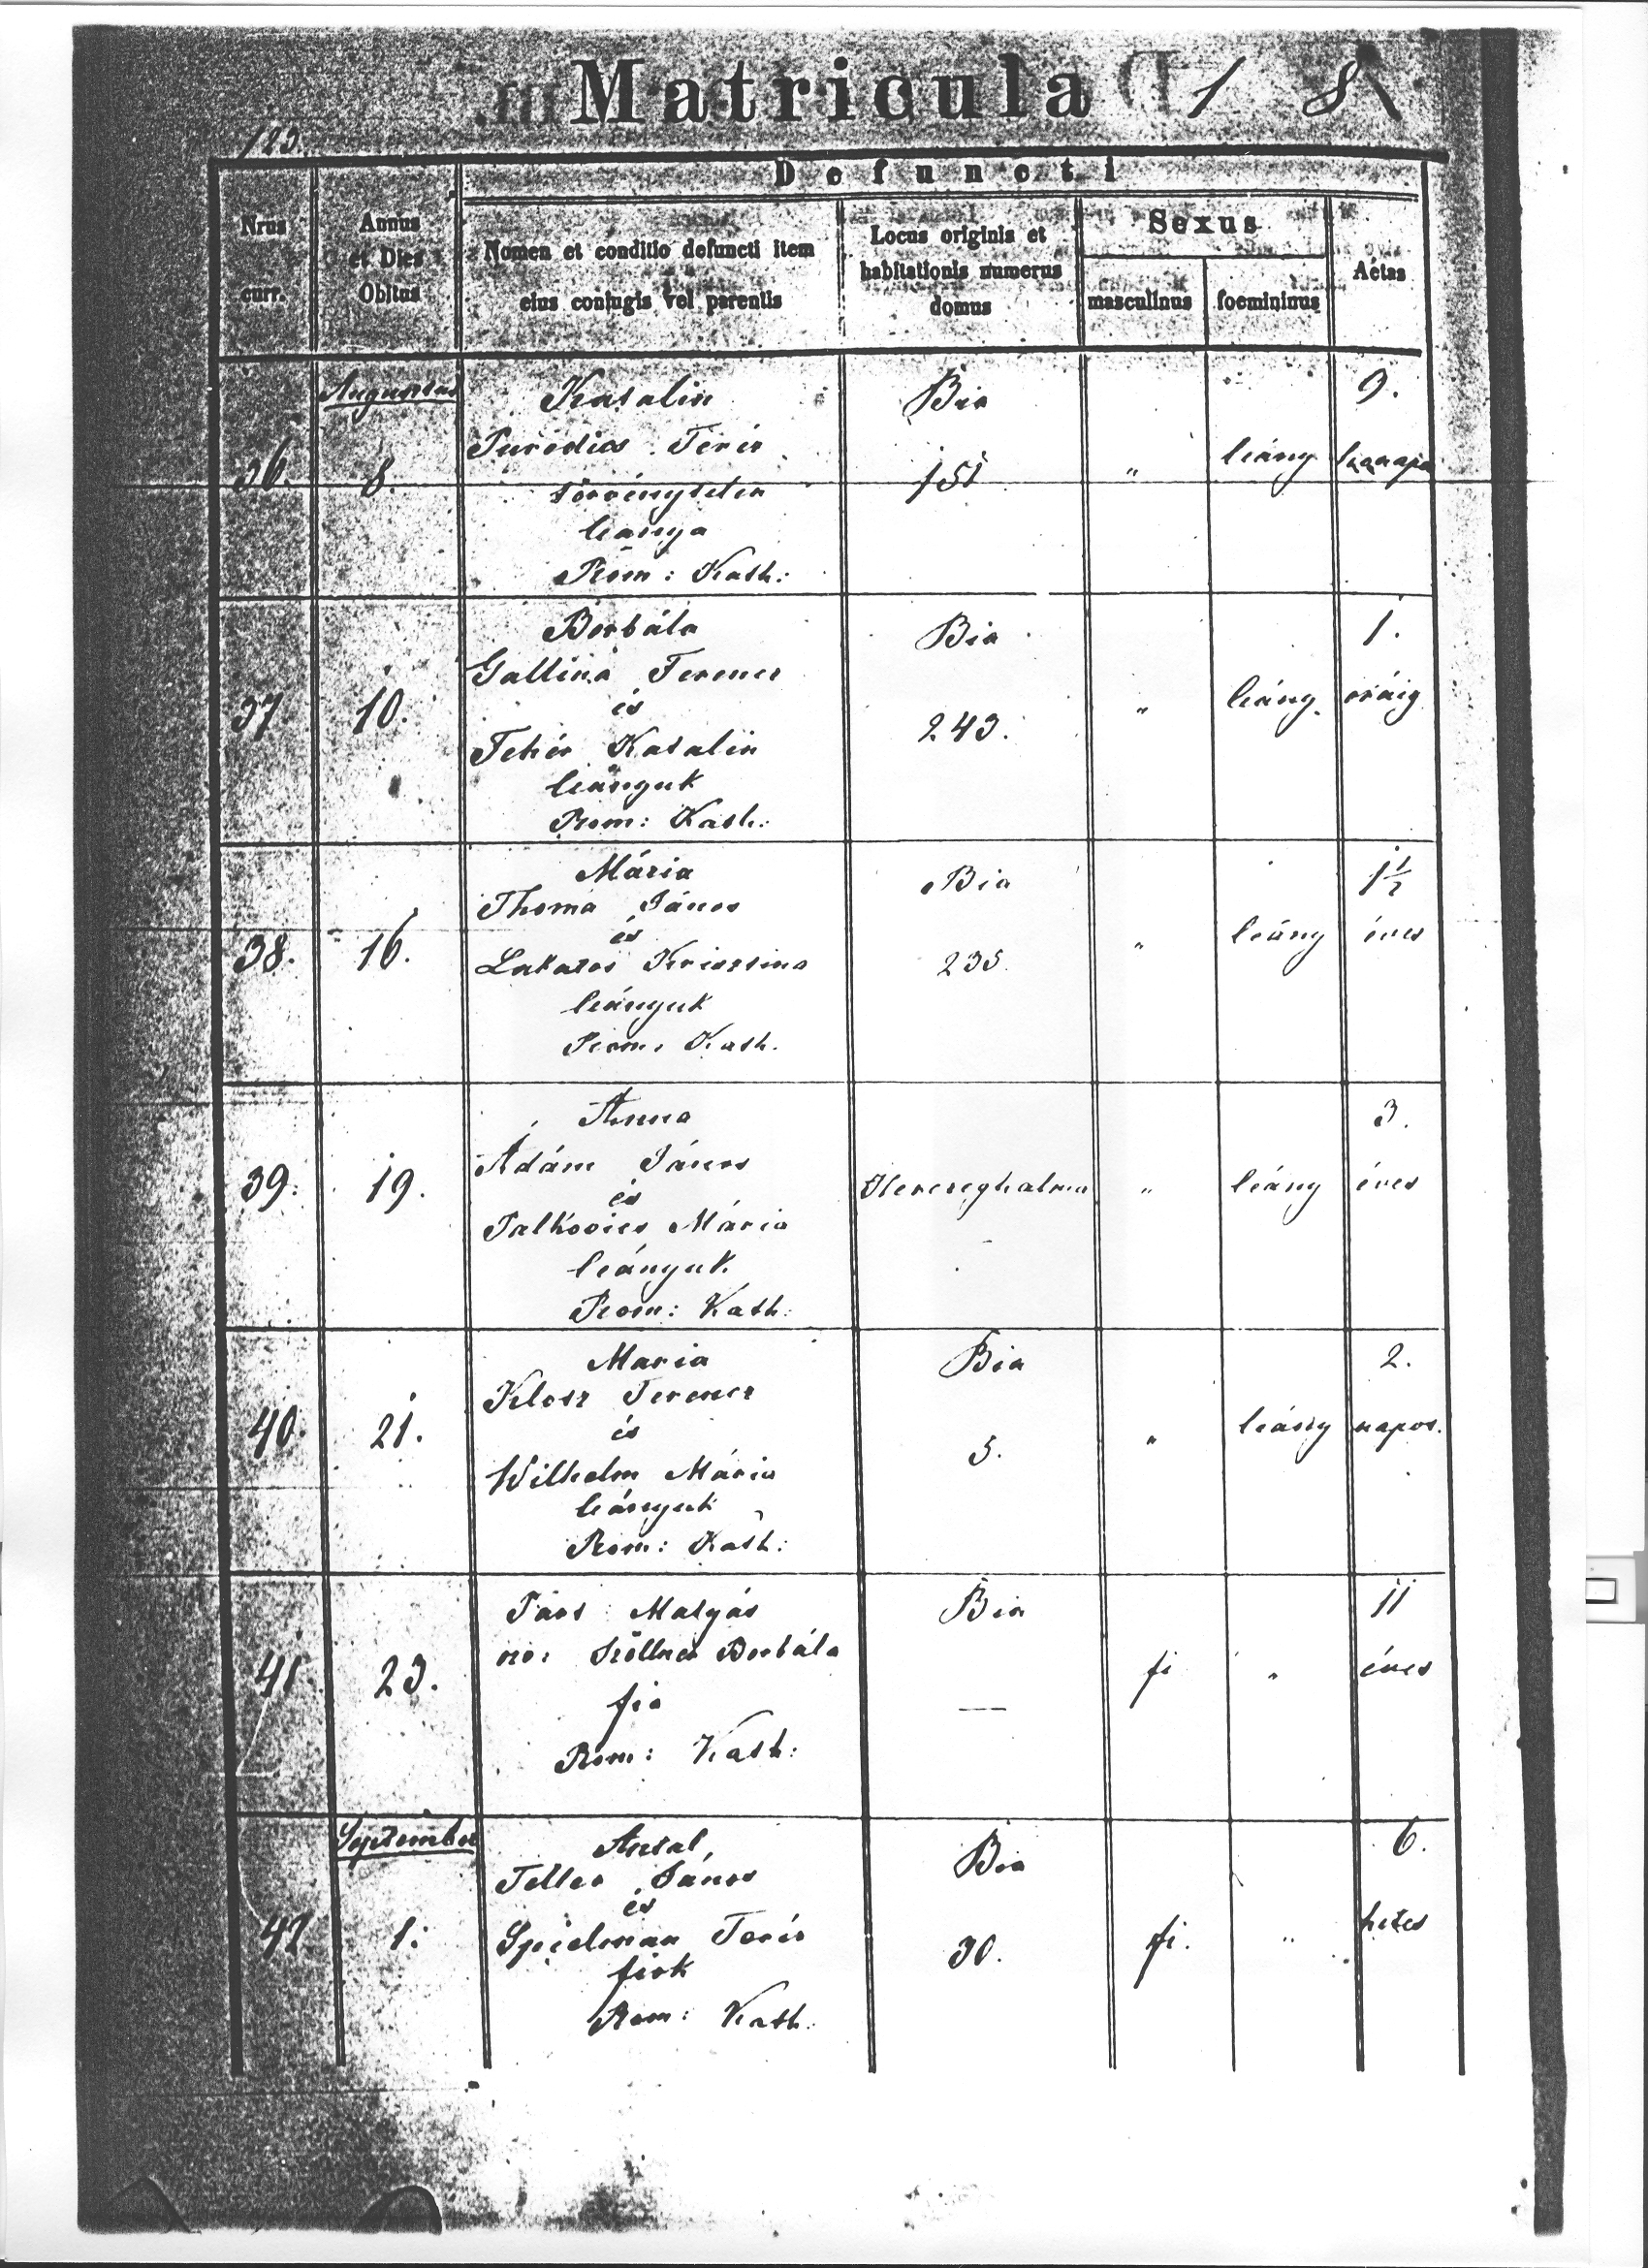 Matricula
1 8
123.
Defuncti
Nrus
curr.
Annus
et Dies
Obitus
Nomen et conditio defuncti item
eius coniugis vel parentis
Locus originis et
habitationis numerus
domus
Sexus
masculinus
foemininus
Aetas
Augustus
36. 8.
Katalin
Teréz
törvénytelen
leanya
Rom: Kath:
Bia
151
"
leány
9.
hónapos
37 10.
Borbála
Gallina Ferencz
és
Fehér Katalin
leányuk
Rom: Kath:
Bia
243.
"
leány
1.
óráig
38. 16.
Mária
Thoma János
és
Lakatos Krisztina
leányuk
Rom: Kath.
Bia
235.
"
leány
1 1/2
éves
39. 19.
Anna
Ádám János
és
Palkovics Mária
leányuk
Rom: Kath:
Herczeghalma
"
leány
3.
éves
40. 21.
Maria
Klosz Ferencz
és
Wilhelm Mária
leányuk
Rom: Kath:
Bia
5.
"
leány
2.
napos.
41. 23.
Mátyás
Borbála
fia
Rom: Kath:
Bia
—
fi
"
11
éves
September
42 1.
Antal
Teller János
és
Spielman Teréz
fiok
Rom: Kath:
Bia
30.
fi.
"
6.
hetes